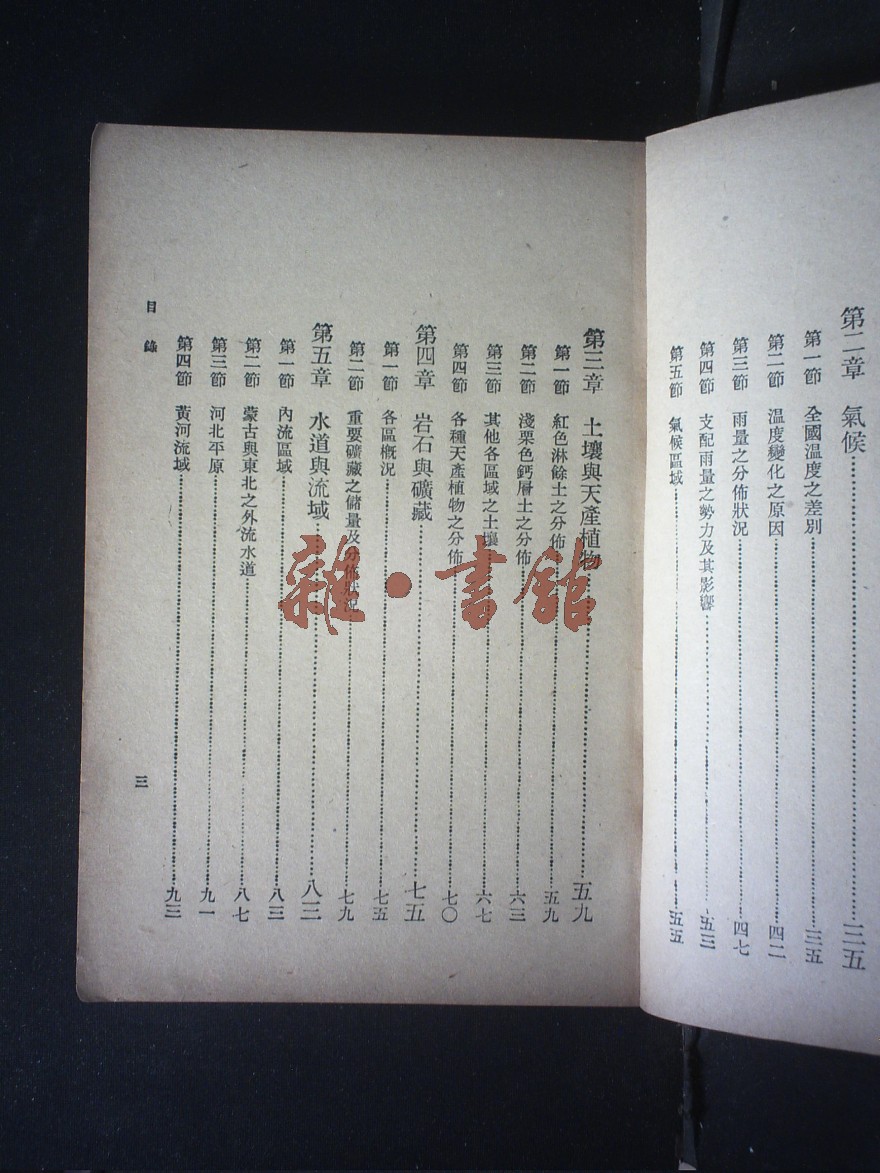 第二章 氣候……三五
第一節 全國溫度之差別……三五
第二節 温度變化之原因……四二
第三節 雨量之分佈狀況……四七
第四節 支配雨量之勢力及其影響……五三
第五節 氣候區域……五五
第三章 土壤與天產植物……五九
第一節 紅色淋餘土之分佈……五九
第二節 淺栗色鈣層土之分佈……六三
第三節 其他各區域之土壤……六七
第四節 各種天產植物之分佈……七〇
第四章 岩石與礦藏……七五
第一節 各區概況……七五
第二節 重要礦藏之儲量及分佈狀況……七九
第五章 水道與流域……八三
第一節 內流區域……八三
第二節 蒙古與東北之外流水道……八七
第三節 河北平原……九一
第四節 黃河流域……九三
目錄
三
雜·書館